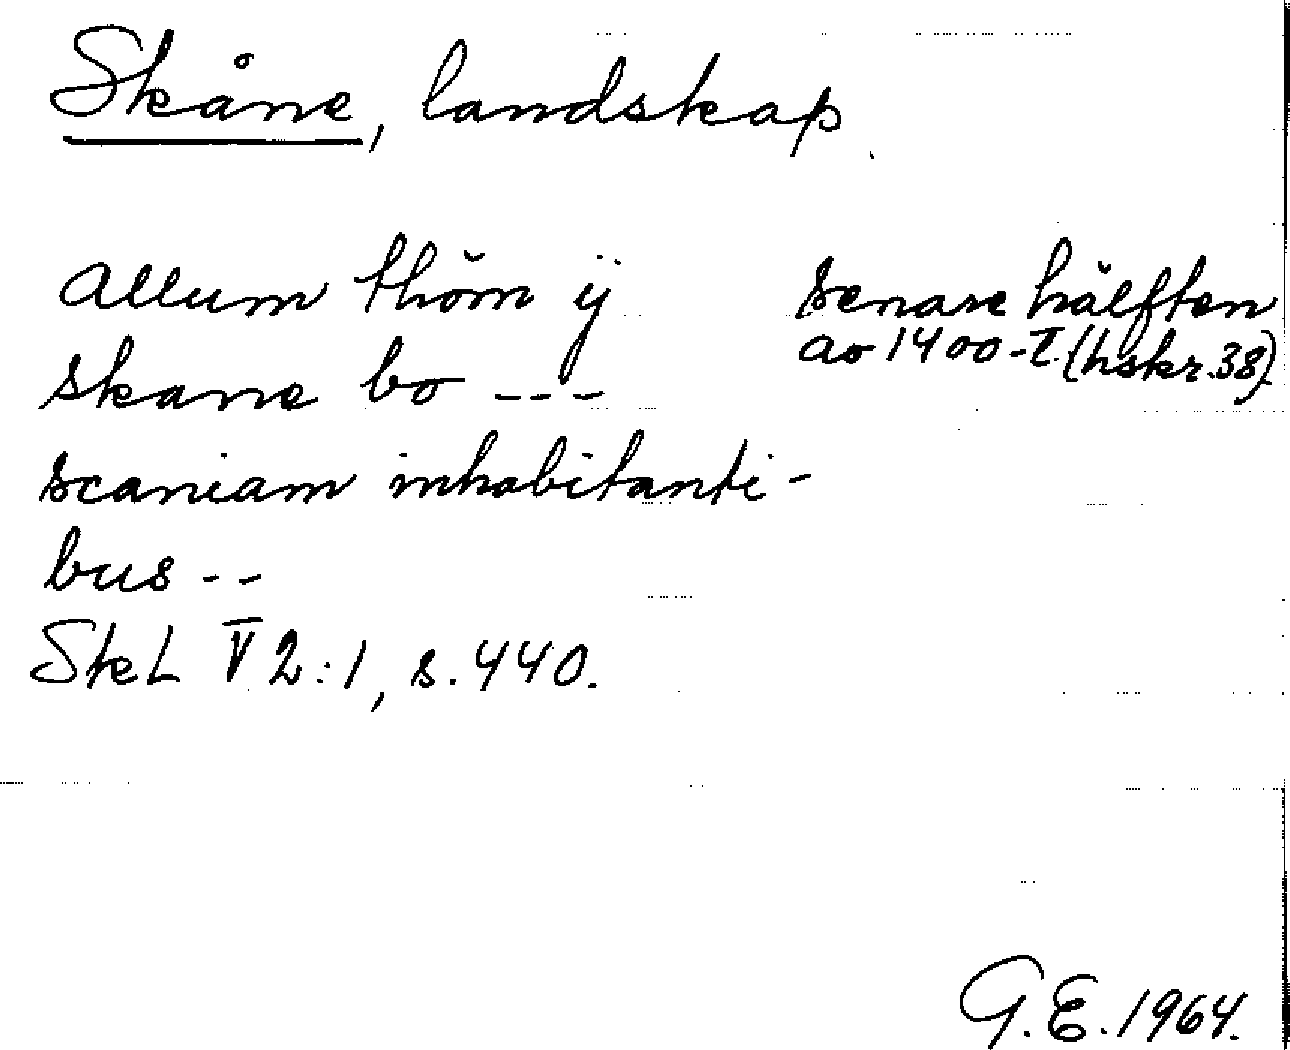 Skåne, landskap.
Allum thöm ij
skane bo ---
scaniam inhabitanti-
bus --
SkL V 2:1, s. 440.
senare hälften
av 1400-t. (hskr. 38).
G.E. 1964.